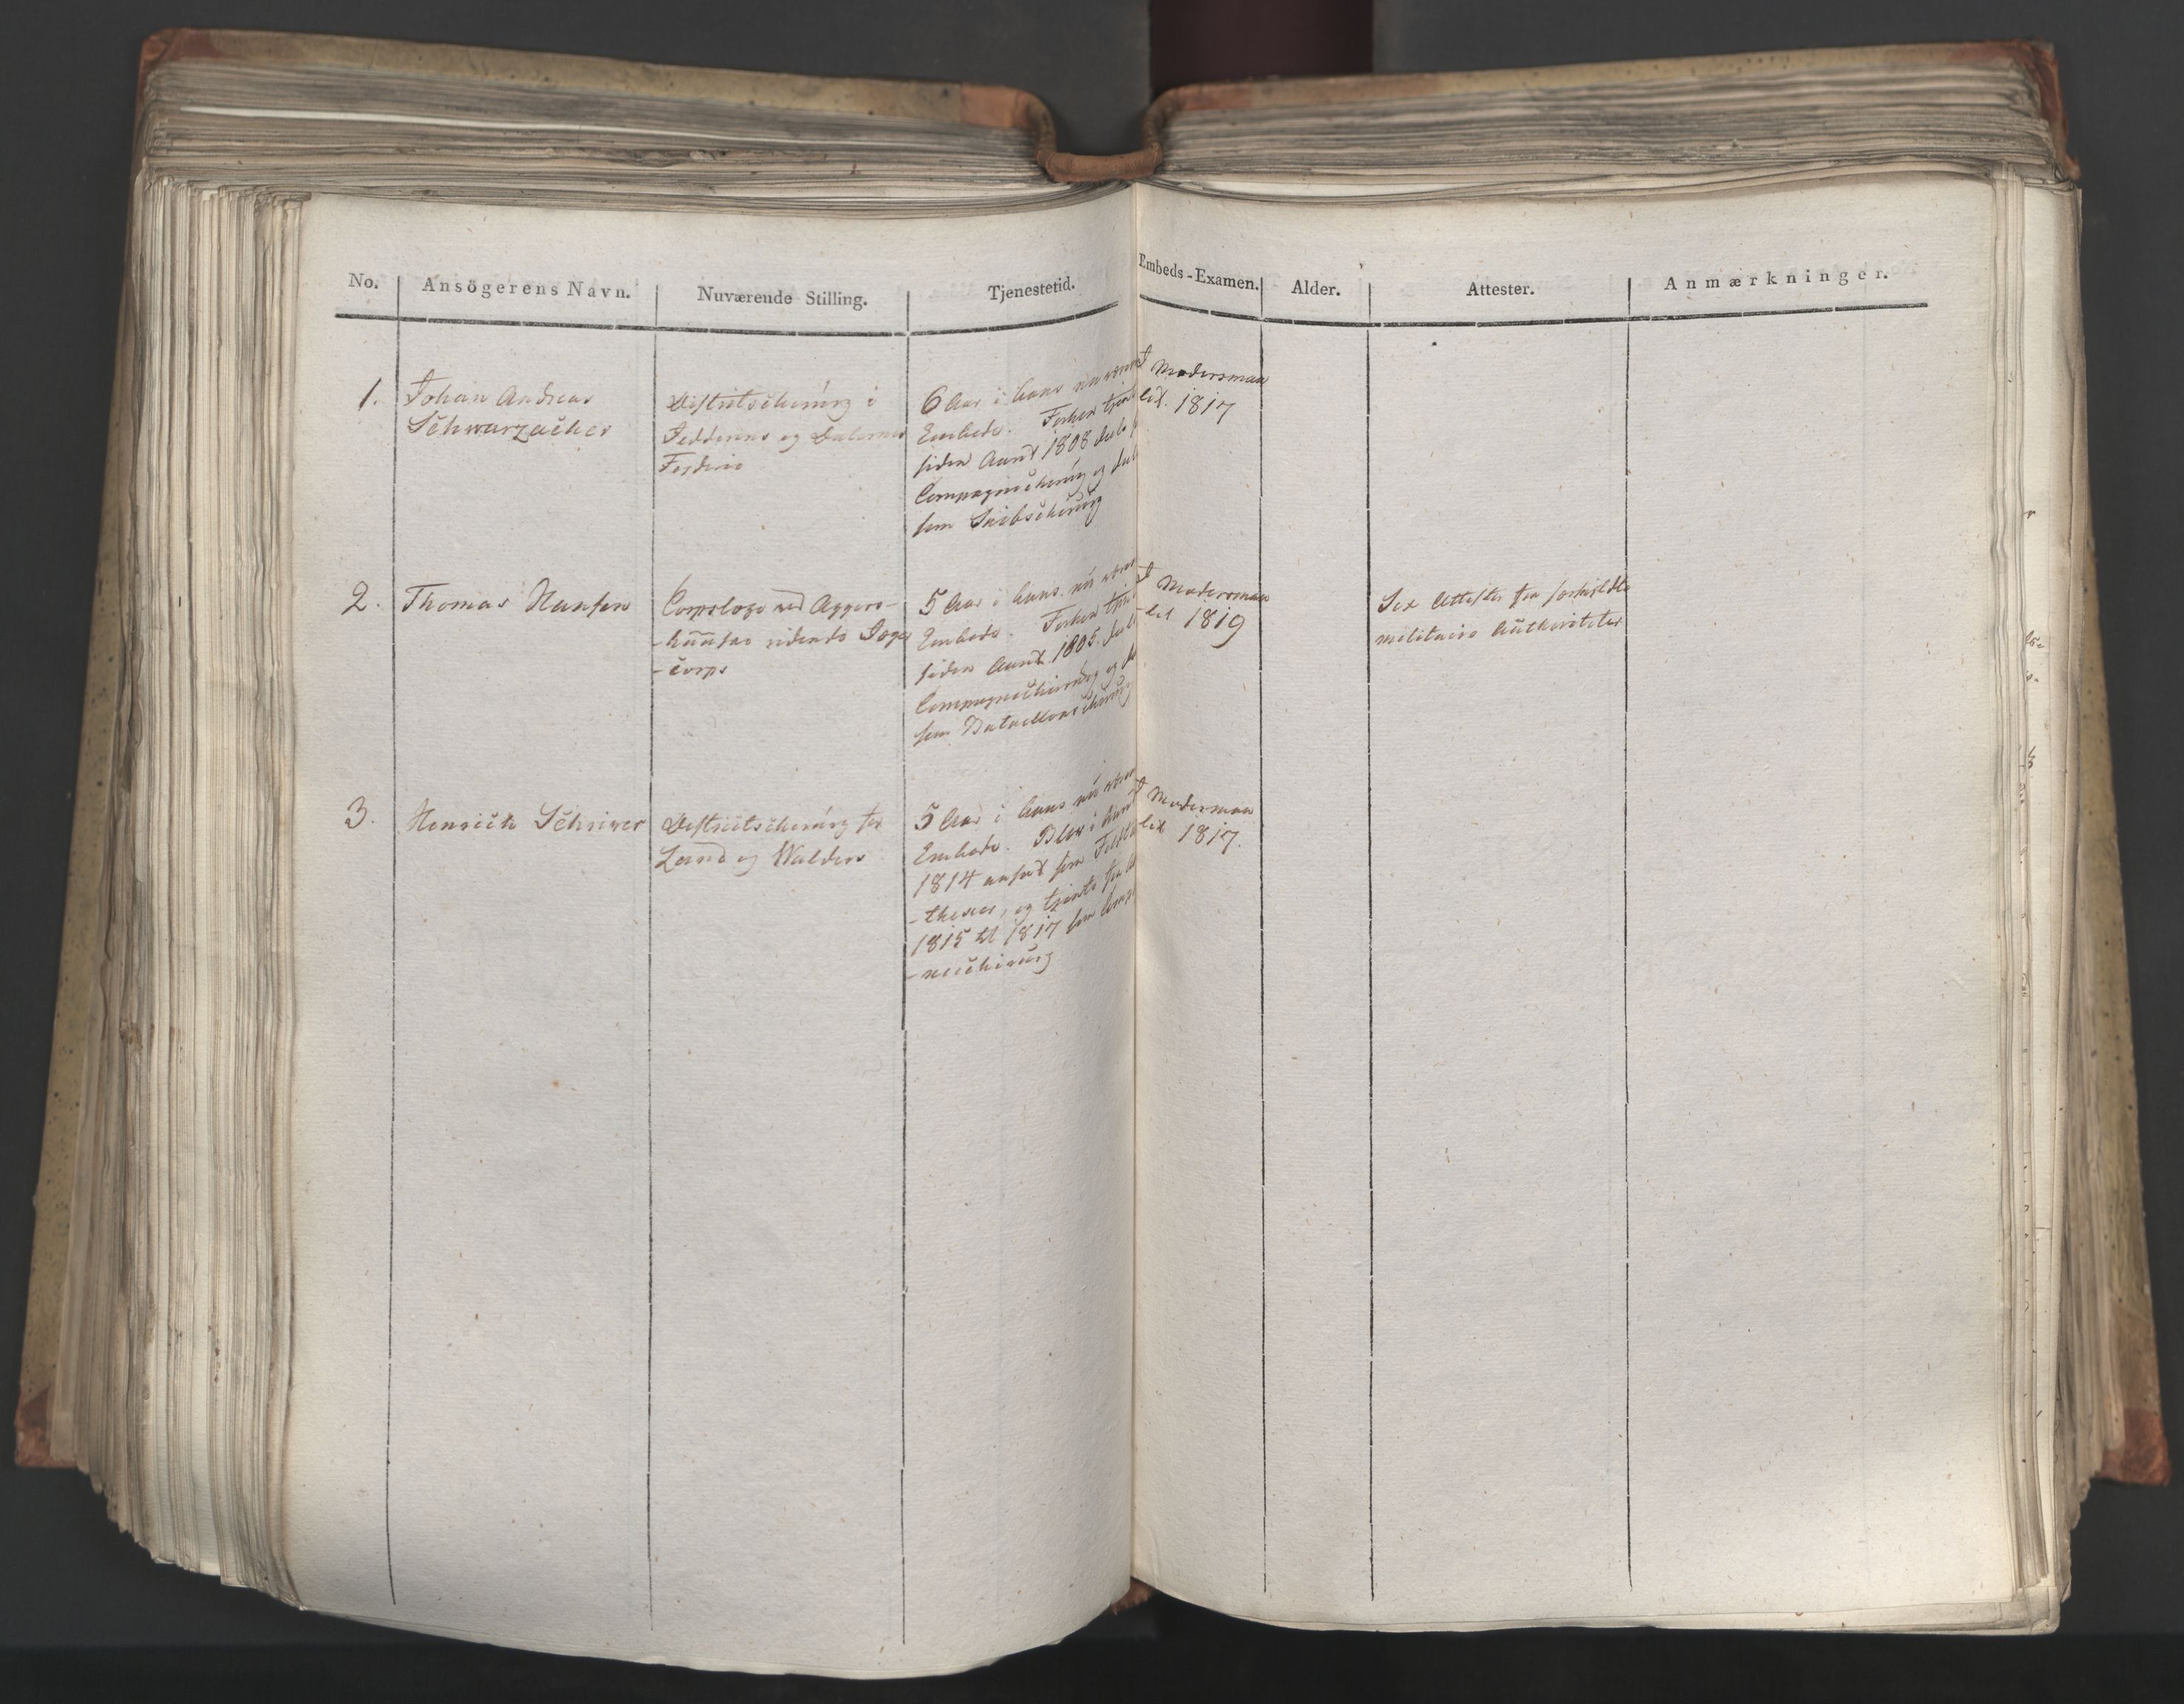 No. Ansögerens Navn. Nuværende Stilling. Tjenestetid. Embeds-Examen. Alder. Attester. Anmærkninger.
1.
Johan Andreas
Schwarzacher
Districtschirurg i
Jedderens og Dalernes
Fogderie
6 Aar i hans nuværen
Embede. Forhen tjent
siden Aaret 1808 deels
Compagniechirurg og deels
som Skibschirurg
I Modersmaa
let. 1817
2.
Thomas Hansen
Corpslæge ved Aggers-
-huusske ridende Jæger
-corps
5 Aar i hans nuværen
Embede. Forhen tjent
siden Aaret 1805. deels
Compagniechirurg og
som Bataillonschirurg
I Modersmaa
-let 1819
Sex Attester fra forskjellte
militaire Authoriteter
3.
Henrich Schriwer
Districtschirurg for
Land og Walders
5 Aar i hans nuværen
Embede. Blev i Aaret
1814 ansat som
, og tjente fra
1815 til 1817 som Comp
-niechirurg
I Modersmaa
let 1817.